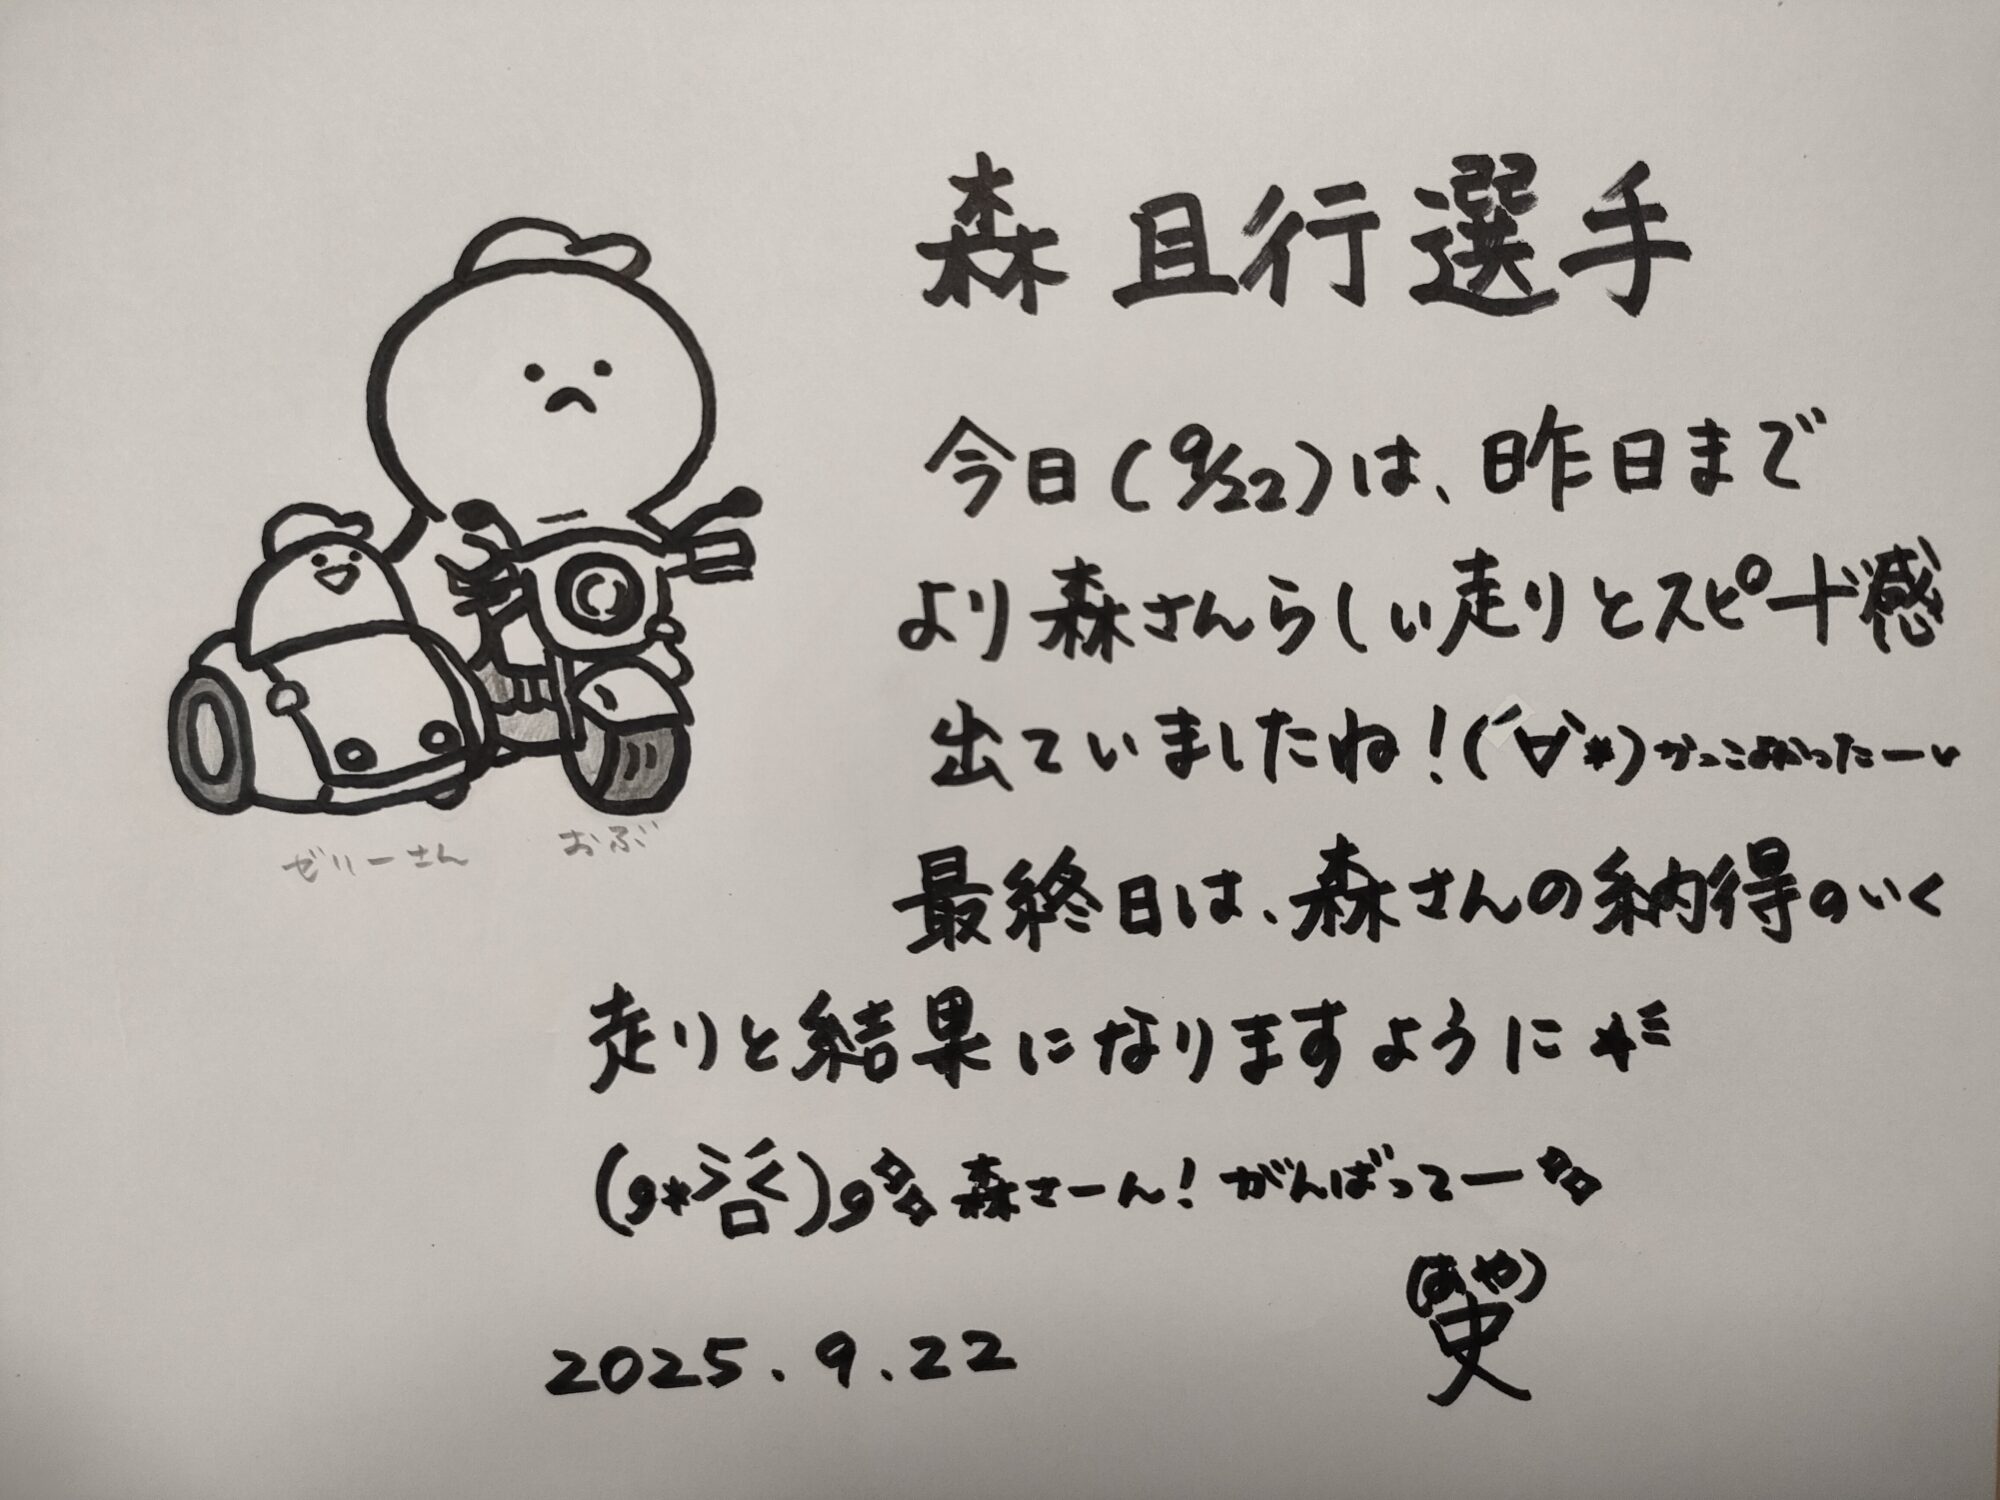 森且行選手
今日(9/22)は、昨日まで
より森さんらしい走りとスピード感
出ていましたね!(´∀`*)かっこよかったーい
最終日は、森さんの納得のいく
走りと結果になりますように
森さーん!がんばってー
(あや)
史
2025.9.22
ゼリーさん
おぶ